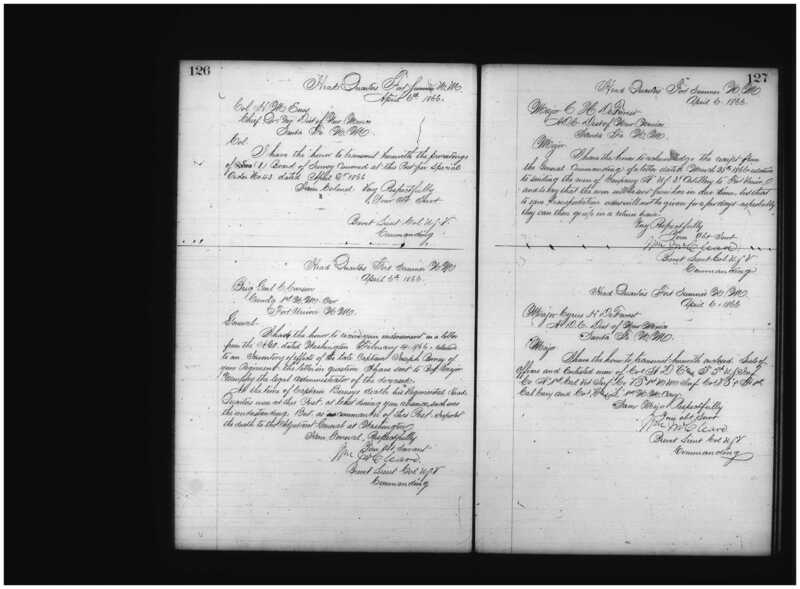 126
Head Quarters Fort Sumner N.M.
April 6th 1866.
Col. H. M. Enos
Chief Qr Mr Dist of New Mexico
Santa Fe N.M.
Col.
I have the honor to transmit herewith the proceedings
of (2) Board of Survey convened at this Post per Special
Order No 43 dated April 2d 1866
I am Colonel Very Respectfully
Your Obt Servt
Brevet Lieut Col U.S.V.
Commanding
Head Quarters Fort Sumner N.M.
April 6th 1866.
Brig Genl C. Carson
Comdg 1st N.M. Cav
Fort Union N.M.
General
I have the honor to your endorsement on a letter
from the A.G.O. dated Washington February 1866, relative
to an Inventory of effects of the late Captain Joseph Berney of
your Regiment. the letter in question I have sent to Major
the legal administrator of the deceased.
At the time of Captain Berneys death his Regimental Head
Quarters was at this Post, at least during your absence, such was
the understanding. But, as commander of this Post, I reported
the death to the Adjutant General at Washington.
I am General, Respectfully
Your Obt Servant
Wm McCleave
Brevet Lieut Col U.S.V.
Commanding
127
Head Quarters Fort Sumner N.M.
April 6, 1866
Major C. H. DeForrest
A.D.C. Dist of New Mexico
Santa Fe N.M.
Major
I have the honor to acknowledge the receipt from
the General Commanding of a letter dated March 31st 1866 relative
to sending the men of Company 3d Artillery to Fort Union
and to say that the men will be sent from here in due time, but
to save transportation orders will not be given for a few days
they can then go up in a return train.
Very Respectfully
Your Obt Servt
Wm McCleave
Brevet Lieut Col U.S.V.
Commanding
Head Quarters Fort Sumner N.M.
April 6, 1866
Major Cyrus H. DeForrest
A.D.C. Dist of New Mexico
Santa Fe N.M.
Major
I have the honor to transmit herewith enclosed Lists of
officers and Enlisted men of Co's
Co 1st Cal Vet Inf. Co B 1st N. Mex Inf. Co's B & 1st
Cal Cavy and Co's 1st N.M. Cavy
I am Major Respectfully
Your obt Servt
Wm McCleave
Brevet Lieut Col U.S.V.
Commanding